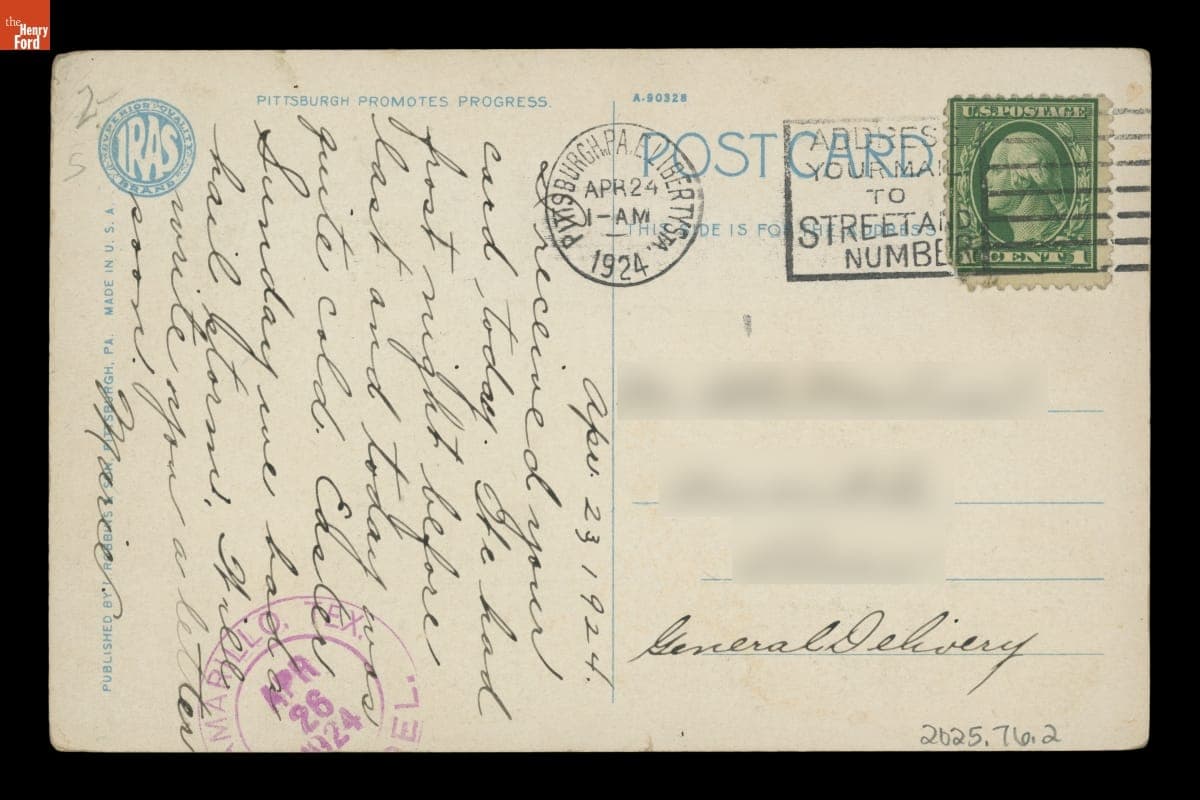 the
Henry
Ford
2-
5
SUPERIOR QUALITY
IRAS
BRAND
PITTSBURGH PROMOTES PROGRESS.
A-90328
POST CARD
THIS SIDE IS FOR THE ADDRESS
PITTSBURGH, PA. E. LIBERTY STA.
APR 24
1-AM
1924
ADDRESS
YOUR MAIL
TO
STREET AND
NUMBER
U.S. POSTAGE
1 CENT 1
PUBLISHED BY I. ROBBINS & SON, PITTSBURGH, PA. MADE IN U.S.A.
Apr. 23 1924.
I received your
card today. He had
frost night before
last and today was
quite cold. Easter
Sunday we had a
hail storm. Will
write you a letter
soon.
Marie.
General Delivery
AMARILLO, TEX.
APR
26
1924
DEL.
2025.76.2